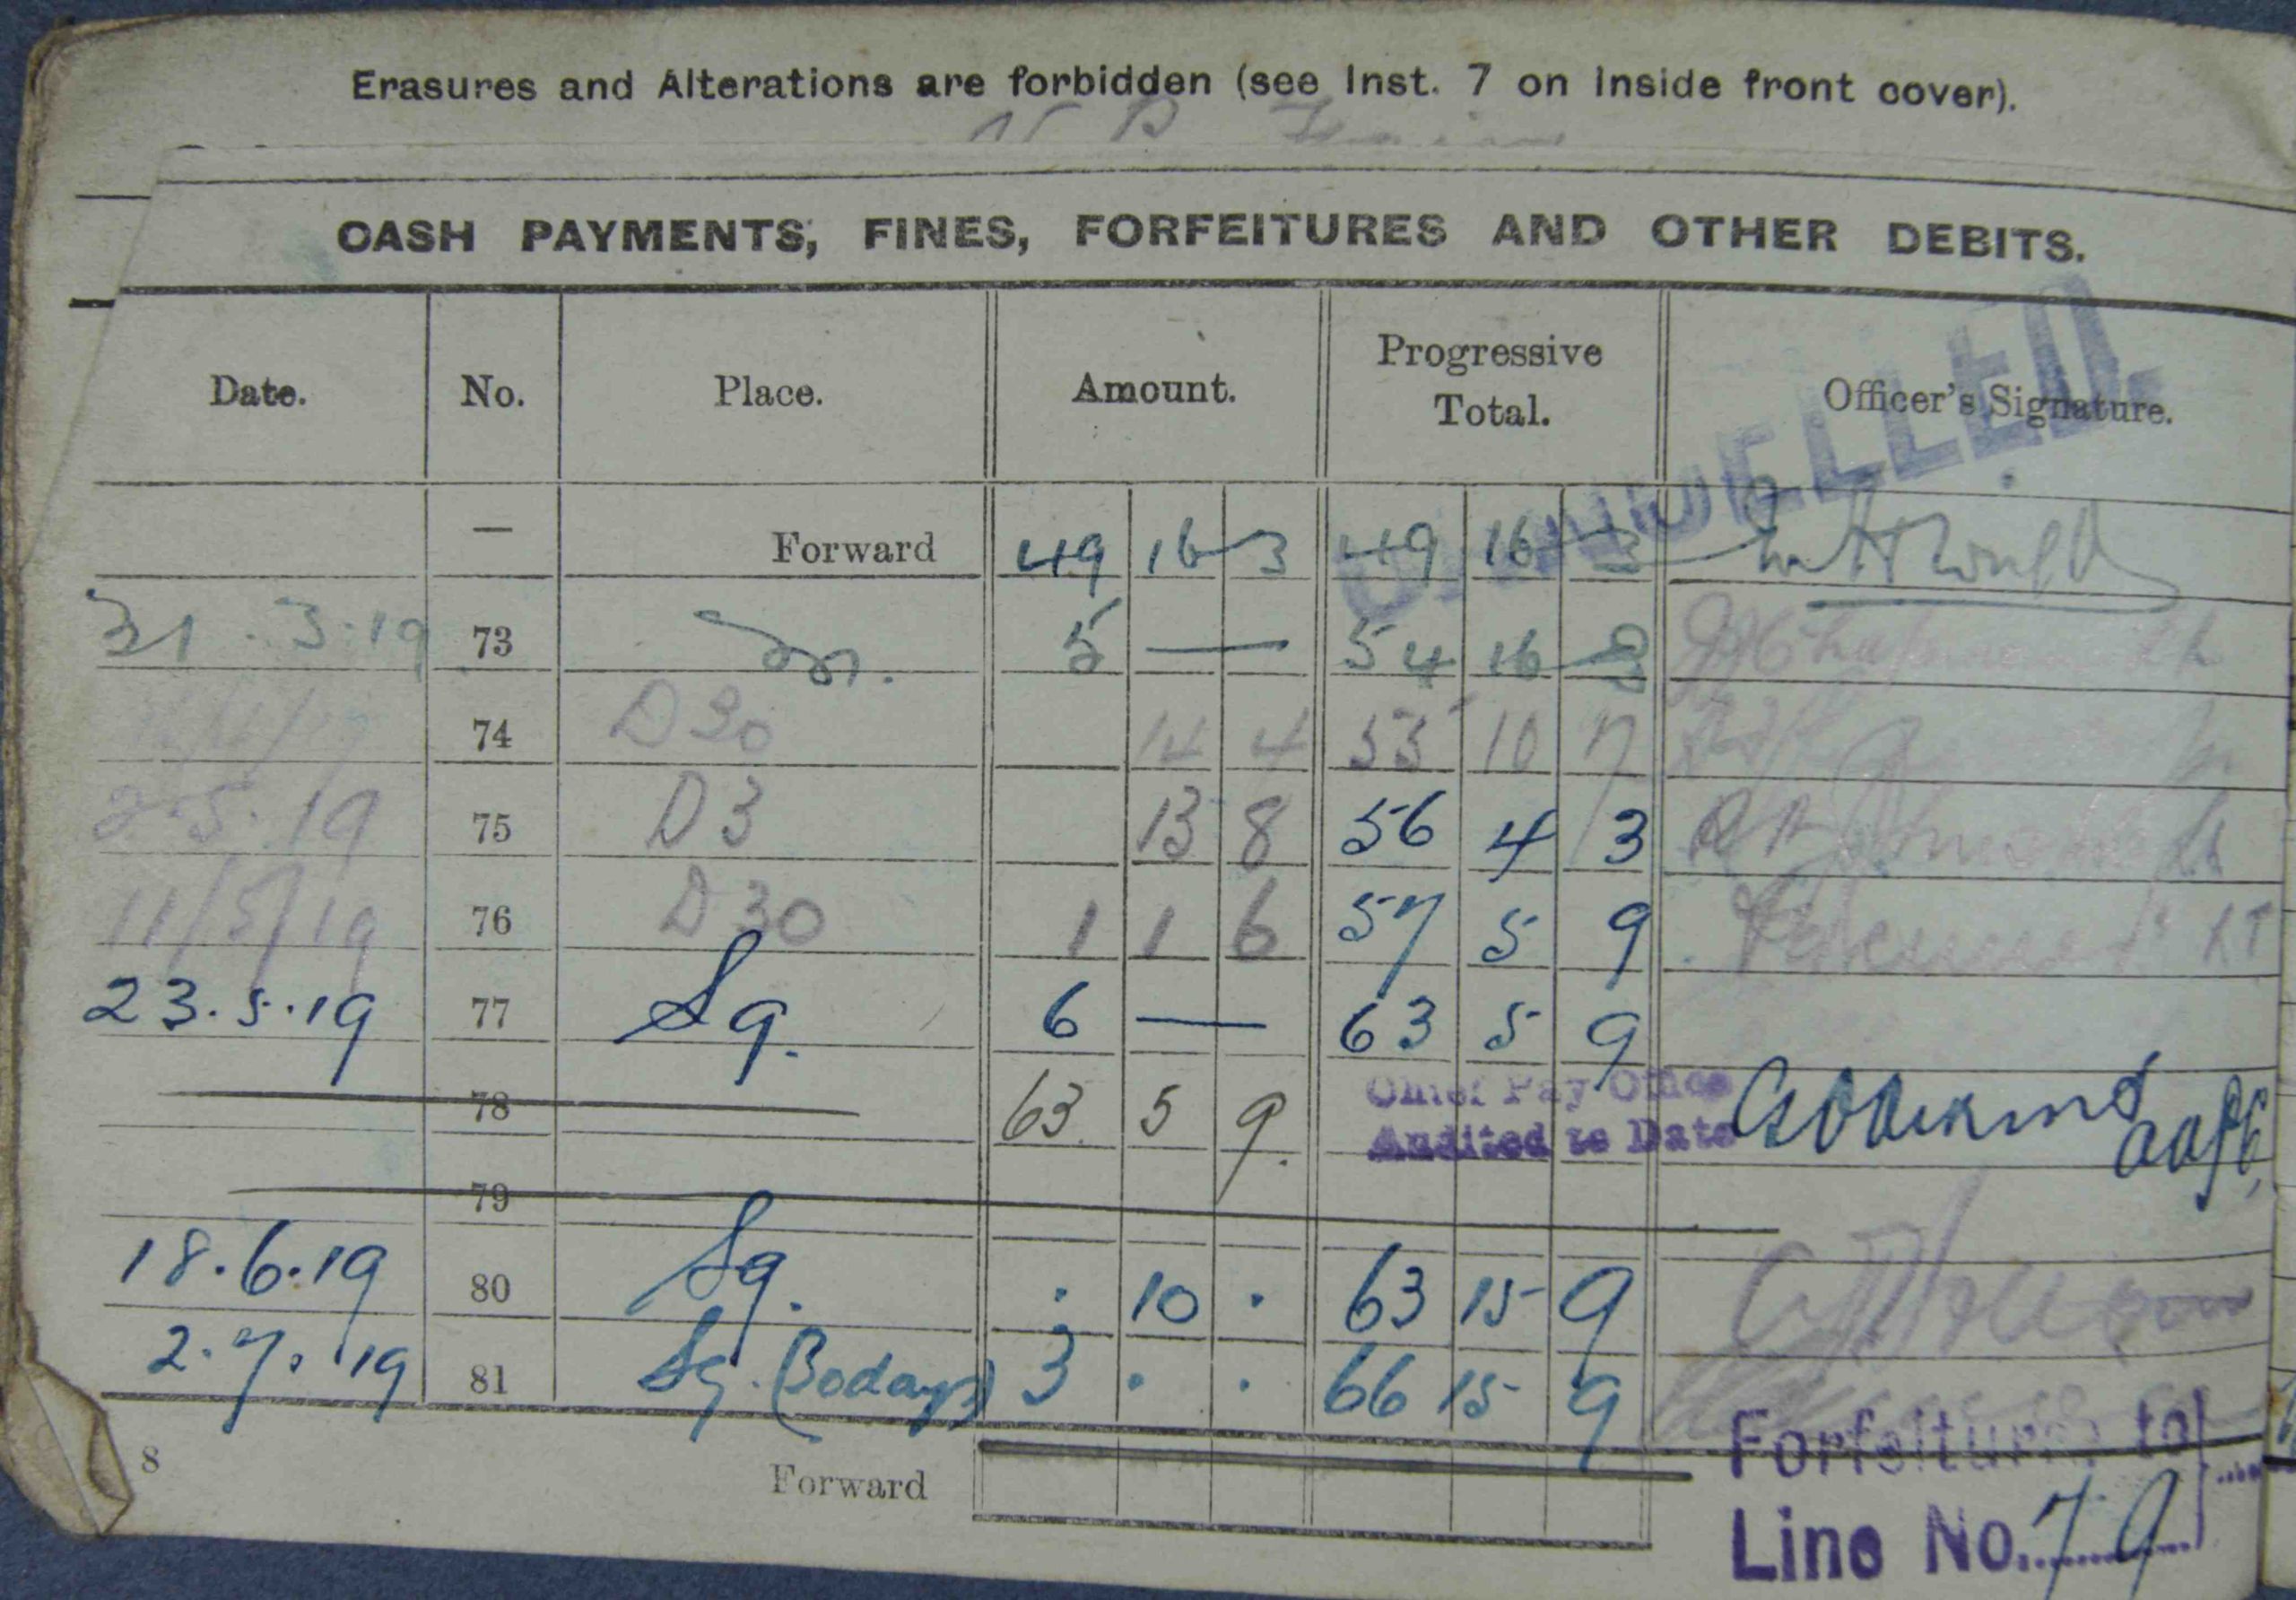 Erasures and Alterations are forbidden (see Inst. 7 on inside front cover).
CASH PAYMENTS, FINES, FORFEITURES AND OTHER DEBITS.
Date. No. Place. Amount. Progressive Total. Officer's Signature.
CANCELLED.
— Forward 49 16 3 49 16 3
31.3.19 73 5 — 54 16 3
74 D30 14 4 55 10 7
2.5.19 75 D3 13 8 56 4 3
11/5/19 76 D30 1 1 6 57 5 9 LT
23.5.19 77 Sq. 6 — 63 5 9
78 63. 5 9. Chief Pay Office
Audited to Date
79
18.6.19 80 Sq. . 10 . 63 15 9
2.7.19 81 Sq. (30 days) 3 . . 66 15 9
8 Forward
Forfeitures to
Line No. 79